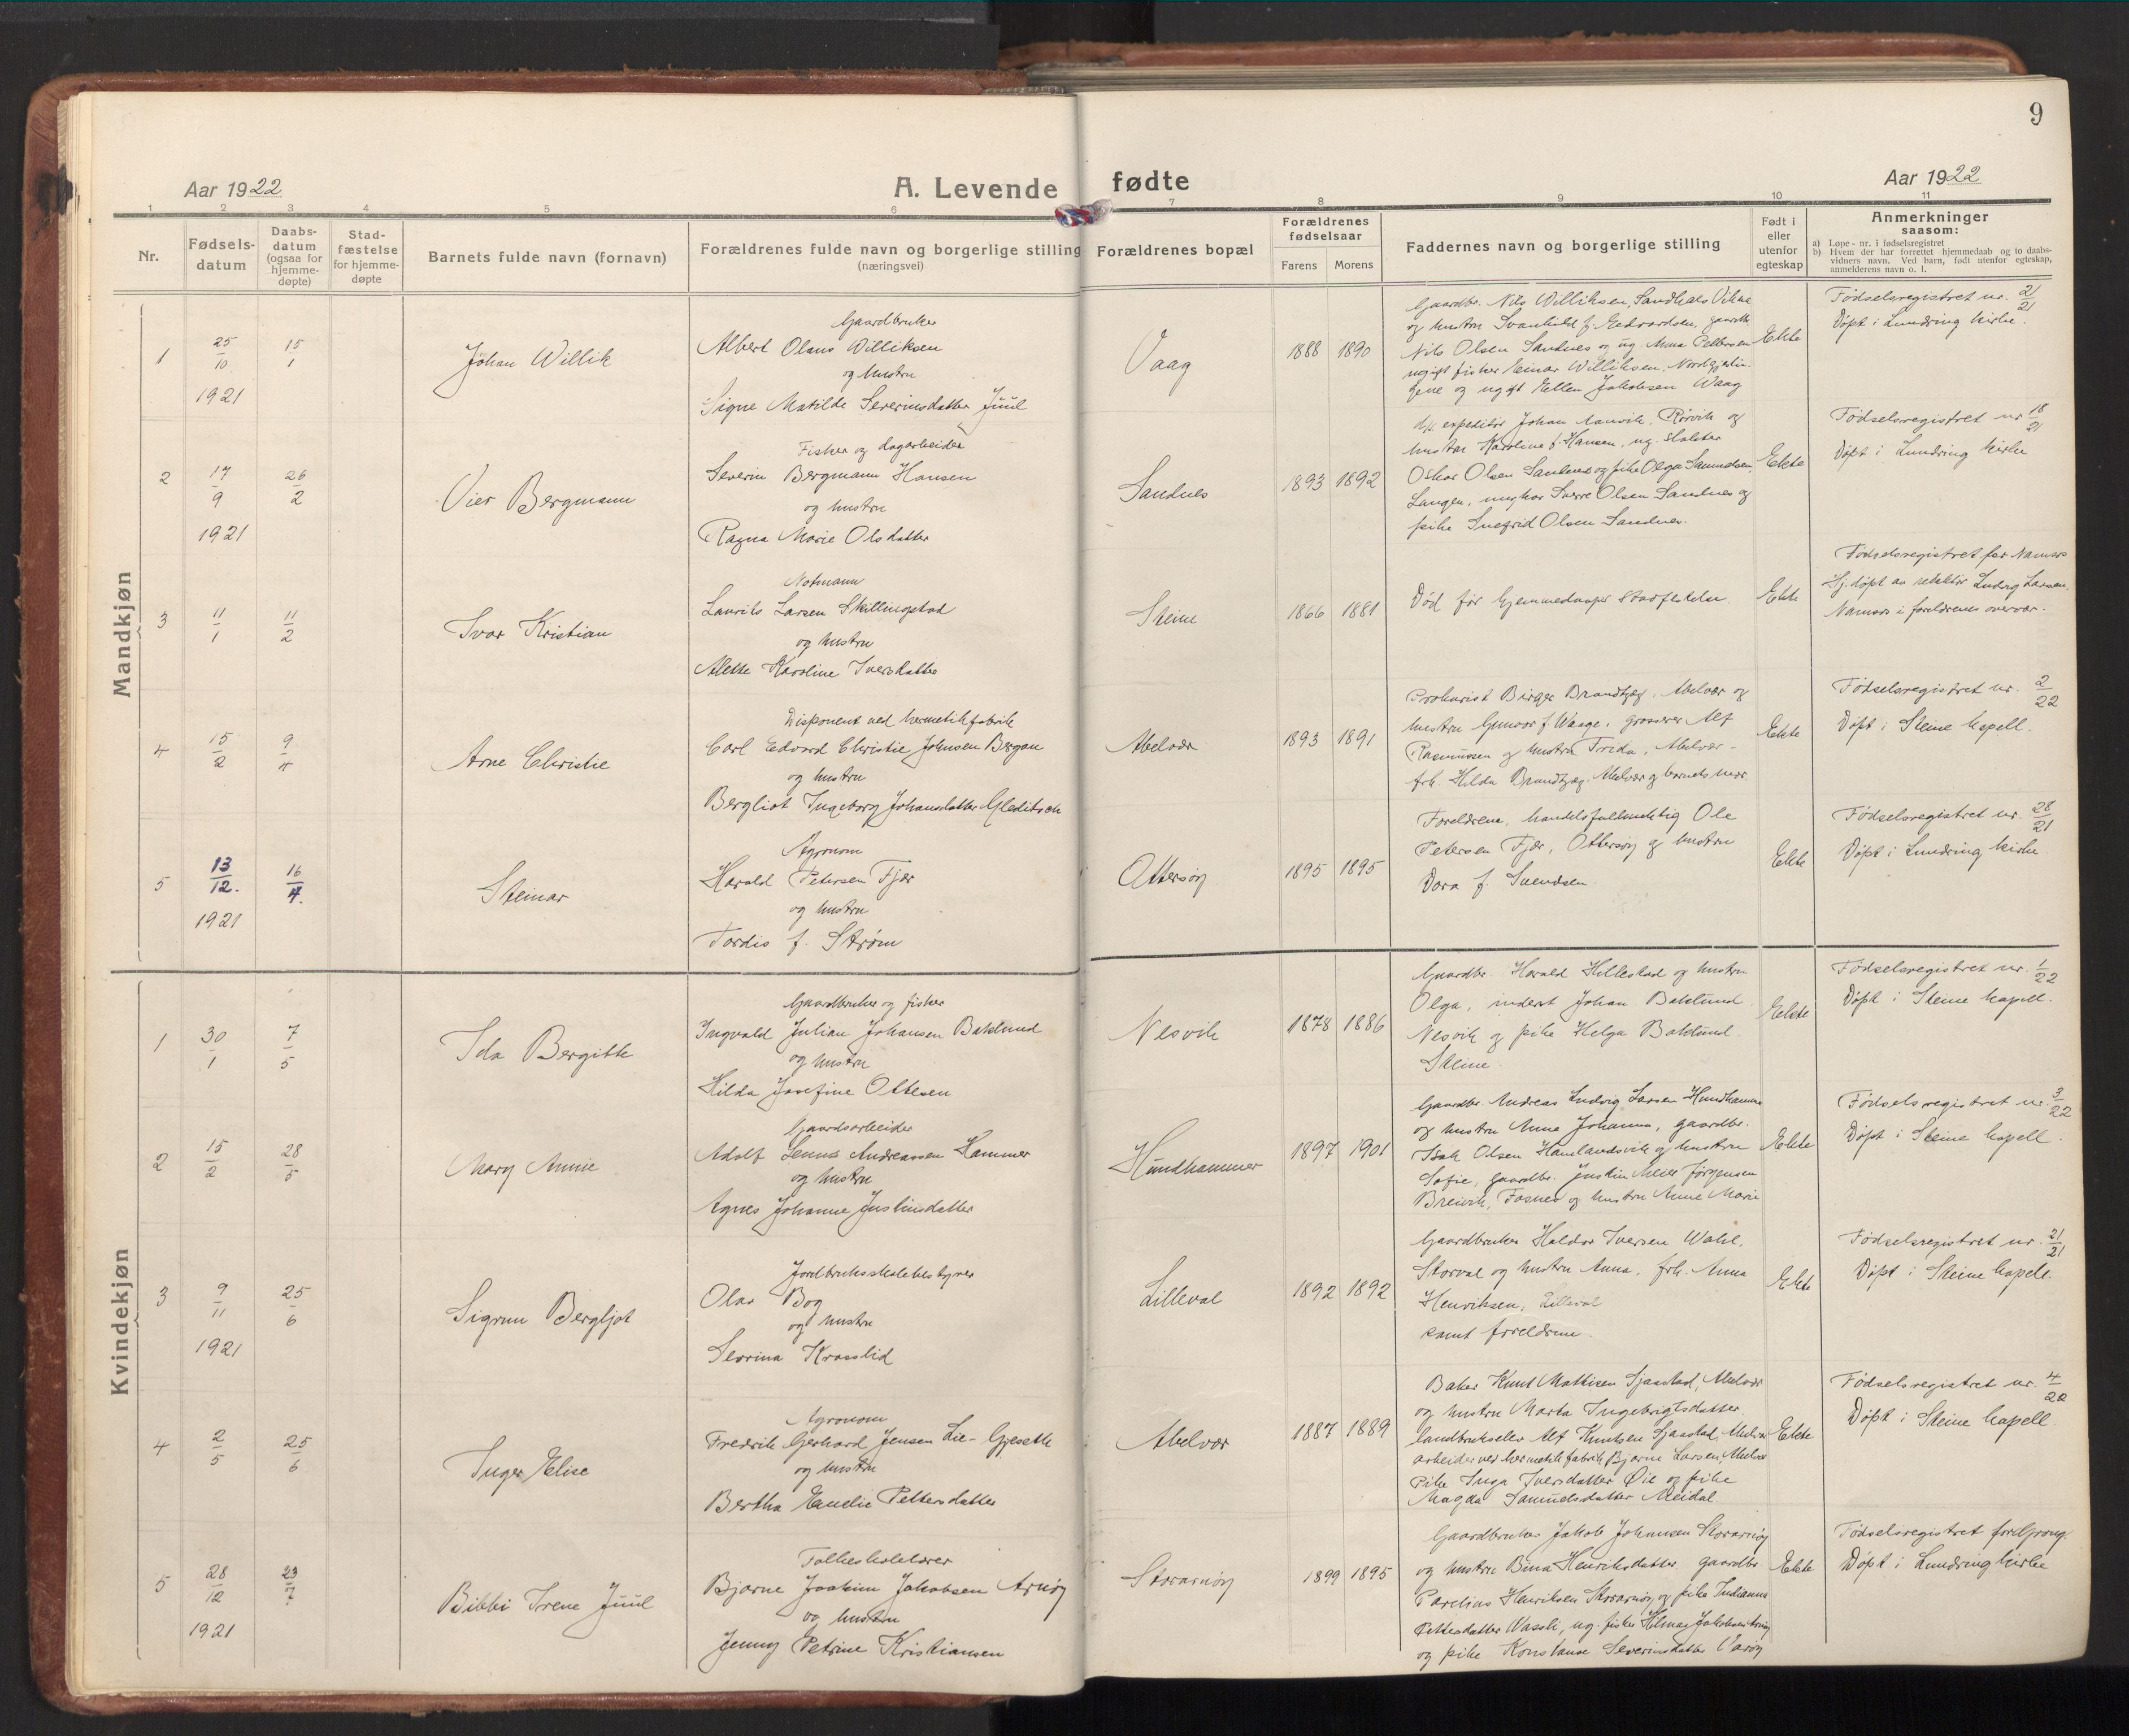 9
Aar 1922
A. Levende fødte
Aar 1922
1 2 3 4 5 6 7 8 9 10 11
Nr.
Fødsels-
datum
Daabs-
datum
(ogsaa for
hjemme-
døpte)
Stad-
fæstelse
for hjemme-
døpte
Barnets fulde navn (fornavn)
Forældrenes fulde navn og borgerlige stilling
(næringsvei)
Forældrenes bopæl
Forældrenes
fødselsaar
Farens Morens
Faddernes navn og borgerlige stilling
Født i
eller
utenfor
egteskap
Anmerkninger
saasom:
a) Løpe-nr. i fødselsregistret
b) Hvem der har forrettet hjemmedaab og to daabs-
vidners navn. Ved barn, født utenfor egteskap,
anmelderens navn o. l.
Mandkjøn
1
25/10 1921
15/1
Johan Willik
Gaardbruker
Albert Olaus Williksen
og hustru
Signe Matilde Severinsdatter Juul
Vaag
1888 1890
Gaardbr. Nils Williksen, Sandhals Vikna
og hustru Svanhild f. Edvardsen, gaardb.
Nils Olsen Sandnes og ug. Anna Pettersen
ugift fisker Einar Williksen,
og ugift Ellen Jakobsen Waag
Ekte
Fødselsregistret nr. 2/21
Døpt i Lundring kirke.
2
17/9 1921
26/2
Vier Bergmann
Fisker og dagarbeider
Severin Bergmann Hansen
og hustru
Ragna Marie Olsdatter
Sandnes
1893 1892
expeditør Johan Aanvik, Rørvik og
hustru Karoline f. Hansen, ug.
Oskar Olsen Sandnes og pike Olga Samuelsen,
Langøen, ungkar Sverre Olsen Sandnes og
pike Inegrid Olsen Sandnes.
Ekte
Fødselsregistret nr 18/21
Døpt i Lundring kirke
3
11/1
11/2
Ivar Kristian
Notmann
Laurits Larsen Skillingstad
og hustru
Alette Karoline Iversdatter
Steine
1866 1881
Død før hjemmedaapes stadfestelse
Ekte
Fødselsregistret for Namsos
Hj.døpt av redaktør Ludvig Larsen,
Namsos i foreldrenes overvær.
4
15/2
9/4
Arne Christie
Disponent ved hermetikfabrik
Carl Edvard Christie Johnsen Bergan
og hustru
Bergliot Ingeborg Johansdatter Gleditsch
Abelvær
1893 1891
Prokurist Birger Brandtzæg, Abelvær og
hustru Gunvor f. Waage, grosserer Alf
Rasmussen og hustru Frida, Abelvær -
frk. Hilda Brandtzæg, Abelvær og barnets mor
Ekte
Fødselsregistret nr. 2/22
Døpt i Steine kapell.
5
13/12. 1921
16/4.
Steinar
Agronom
Harald Petersen Fjær
og hustru
Tordis f. Strøm
Ottersøy
1895 1895
Foreldrene, handelsfullmektig Ole
Petersen Fjær, Ottersøy og hustru
Dora f. Svendsen.
Ekte
Fødselsregistret nr. 28/21
Døpt i Lundring kirke
Kvindekjøn
1
30/1
7/5
Ida Bergitte
Gaardbruker og fisker
Ingvald Julian Johansen Baklund
og hustru
Hilda Josefine Ottesen
Nesvik
1878 1886
Gaardbr. Harald Hillestad og hustru
Olga, inderst Johan Baklund
Nesvik og pike Helga Baklund
Steine
Ekte
Fødselsregistret nr. 1/22
Døpt i Steine kapell.
2
15/2
28/5
Mary Annie
Gaardsarbeider
Adolf Andreassen Hammer
og hustru
Agnes Johanne Justinsdatter
Hundhammer
1897 1901
Gaardbr. Andreas Ludvig Larsen Hundhammer
og hustru Anne Johanna, gaardbr.
Isak Olsen Hamlandsvik og hustru
Sofie, gaardbr. Justin Meier Jørgensen
Breivik, Fosnes og hustru Anne Marie
Ekte
Fødselsregistret nr. 3/22
Døpt i Steine kapell.
3
9/11 1921
25/6
Sigrun Bergljot
Jordbruksskolebestyrer
Olav Bog
og hustru
Severina Krasslid
Lilleval
1892 1892
Gaardbruker Haldor Iversen Wahl,
Storval og hustru Anna, frk. Anna
Henriksen, Lilleval
samt foreldrene.
Ekte
Fødselsregistret nr. 21/21
Døpt i Steine kapell.
4
2/5
25/6
Inger Elise
Agronom
Fredrik Gerhard Jensen Lie-Gjeseth
og hustru
Bertha Emelie Pettersdatter
Abelvær
1887 1889
Baker Knut Mathisen Sjaastad, Abelvær
og hustru Marta Ingebrigtsdatter,
landbrukselev Alf Knutsen Sjaastad, Abelvær
arbeider ved hermetikfabrik Bjarne Larsen, Abelvær
Pike Inga Iversdatter Øie og pike
Magda Samuelsdatter Meidal.
Ekte
Fødselsregistret nr. 4/22
Døpt i Steine kapell.
5
28/12 1921
23/7
Bibbi Irene Juul
Folkeskolelærer
Bjarne Joakim Jakobsen Arnøy
og hustru
Jenny Petrine Kristiansen
Storarnøy
1899 1895
Gaardbruker Jakob Johansen Storarnøy
og hustru Bina Henriksdatter, gaardbr.
Parelius Henriksen Storarnøy og pike Indianna
Pettersdatter Wassli, ug. fisker Hilmar Jakobsen Arnøy
og pike Konstanse Severinsdatter Varøy
Ekte
Fødselsregistret for Grong.
Døpt i Lundring kirke